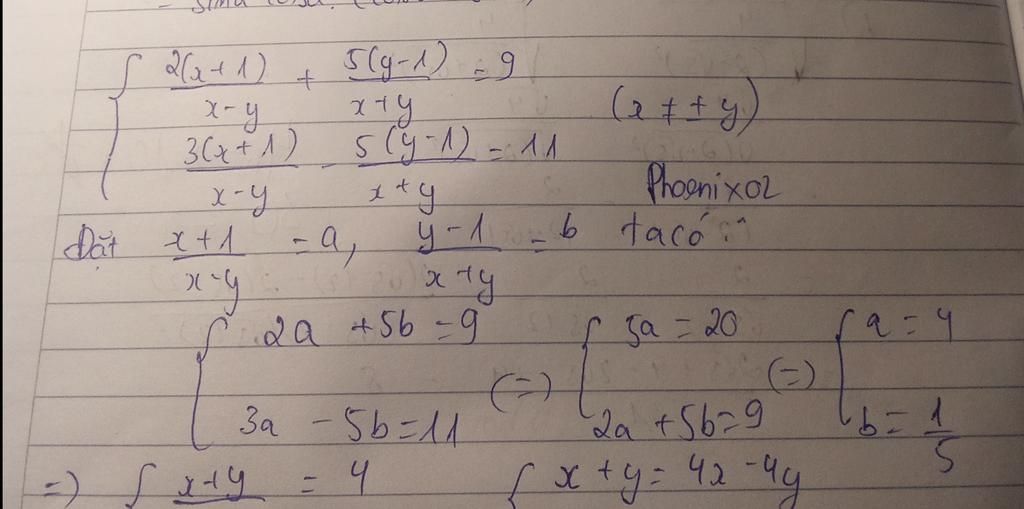 2(x+1)/(x-y) + 5(y-1)/(x+y) = 9
(x ≠ ± y)
3(x+1)/(x-y) - 5(y-1)/(x+y) = 11
Phoenix02
Đặt (x+1)/(x-y) = a, (y-1)/(x+y) = b ta có:
{ 2a + 5b = 9 (=) { 5a = 20 (=) { a = 4
{ 3a - 5b = 11 { 2a + 5b = 9 { b = 1/5
=) { x+y = 4 { x + y = 4x - 4y